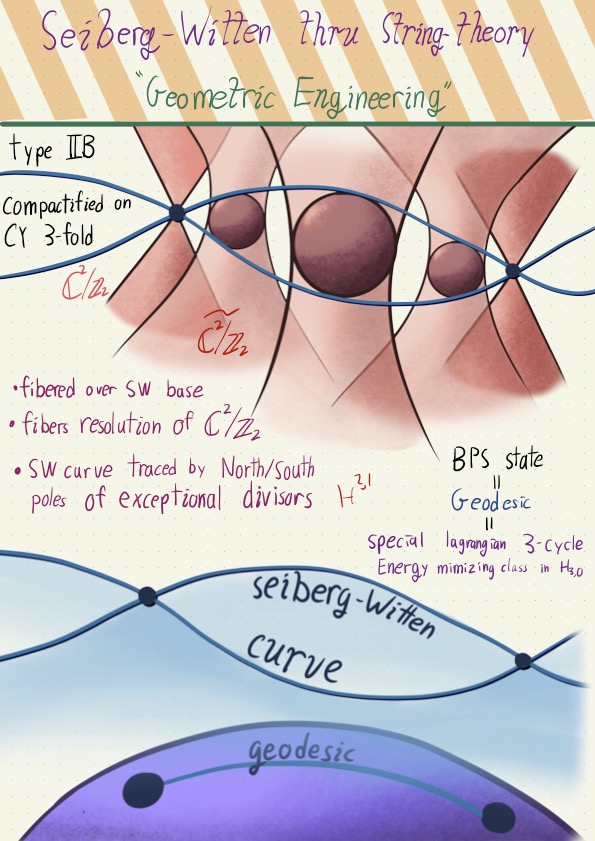 Seiberg-Witten thru String-theory
"Geometric Engineering"
type IIB
Compactified on
CY 3-fold
ℂ²/ℤ₂
ℂ²/ℤ₂
•fibered over SW base
• fibers resolution of ℂ²/ℤ₂
• SW curve traced by North/South
poles of exceptional divisors
H³,¹
BPS state
=
Geodesic
=
special lagrangian 3-cycle
Energy mimizing class in H₃,₀
seiberg-Witten
curve
geodesic